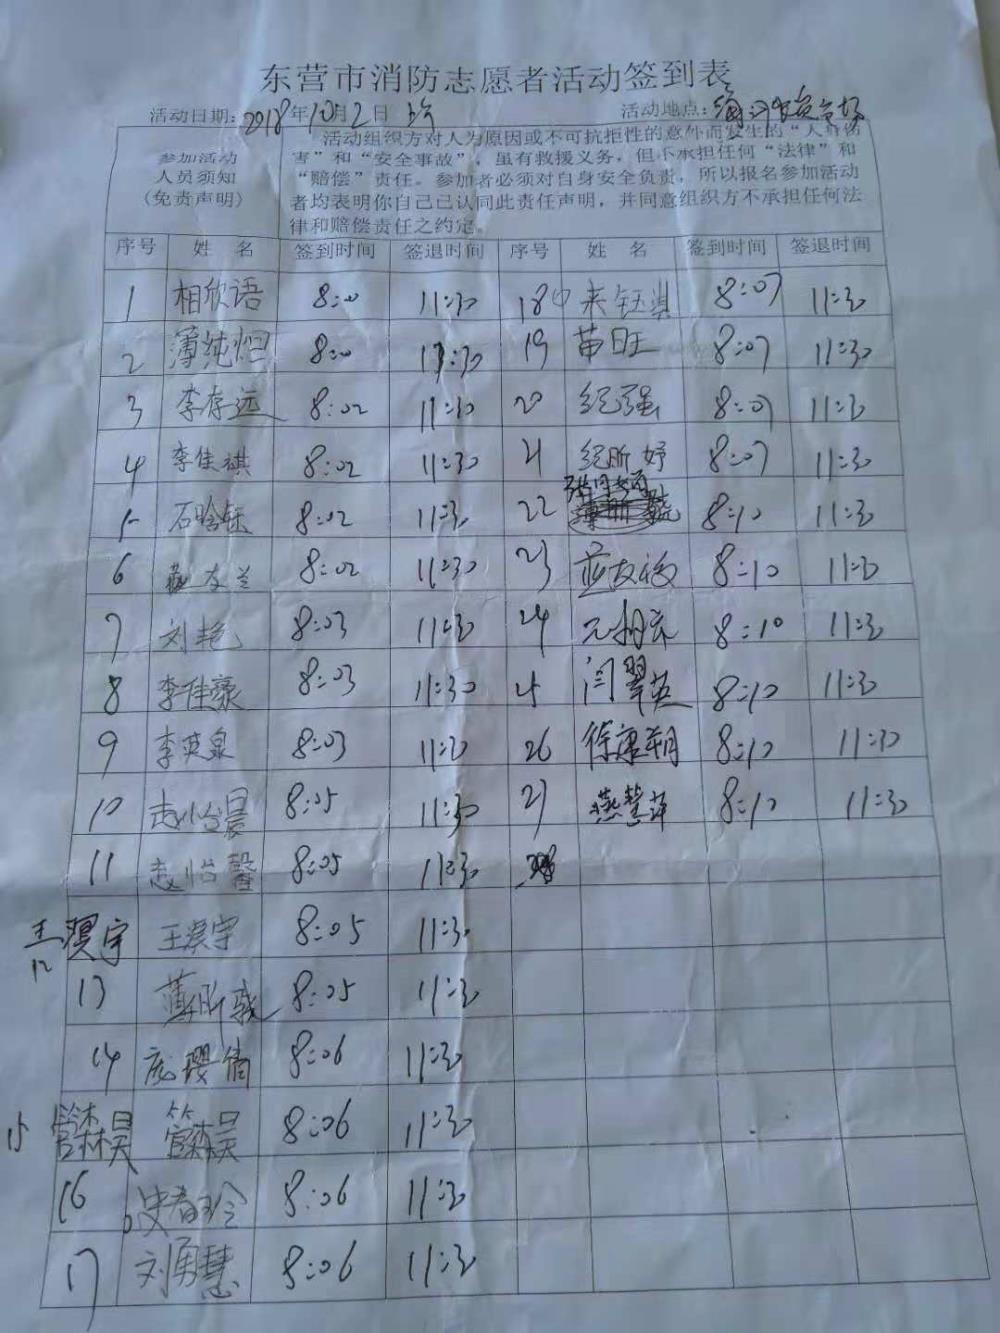 东营市消防志愿者活动签到表
活动日期：2018年10月2日 活动地点：
参加活动
人员须知
（免责声明）
活动组织方对人为原因或不可抗拒性的意外而发生的“人身伤
害”和“安全事故”，虽有救援义务，但不承担任何“法律”和
“赔偿”责任。参加者必须对自身安全负责，所以报名参加活动
者均表明你自己已认同此责任声明，并同意组织方不承担任何法
律和赔偿责任之约定。
序号 姓 名 签到时间 签退时间 序号 姓 名 签到时间 签退时间
1 相欣语 8:00 11:30 18 8:07 11:30
2 8:00 11:30 19 苗旺 8:07 11:30
3 李存远 8:02 11:30 20 纪强 8:07 11:30
4 李佳祺 8:02 11:30 21 纪昕妤 8:07 11:30
5 石晗钰 8:02 11:30 22 8:10 11:30
6 8:02 11:30 23 8:10 11:30
7 刘艳 8:03 11:30 24 8:10 11:30
8 李佳豪 8:03 11:30 25 闫翠英 8:10 11:30
9 李英泉 8:03 11:30 26 徐唐朔 8:10 11:30
10 8:05 11:30 27 燕慧萍 8:10 11:30
11 8:05 11:30
12 8:05 11:30
13 8:05 11:30
14 8:06 11:30
15 管森昊 管森昊 8:06 11:30
16 8:06 11:30
17 刘勇慧 8:06 11:30